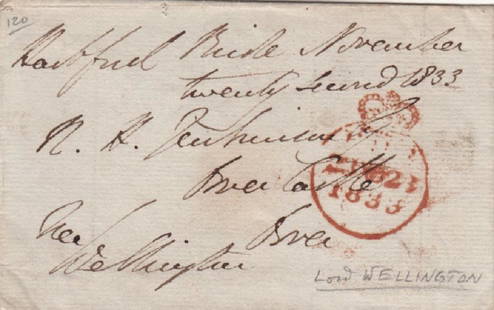 120
3
Hartford Bridge November
twenty second 1833
R. H. Jenkinson
Dover Castle
Free Dover
Wellington
23
1833
Lord WELLINGTON